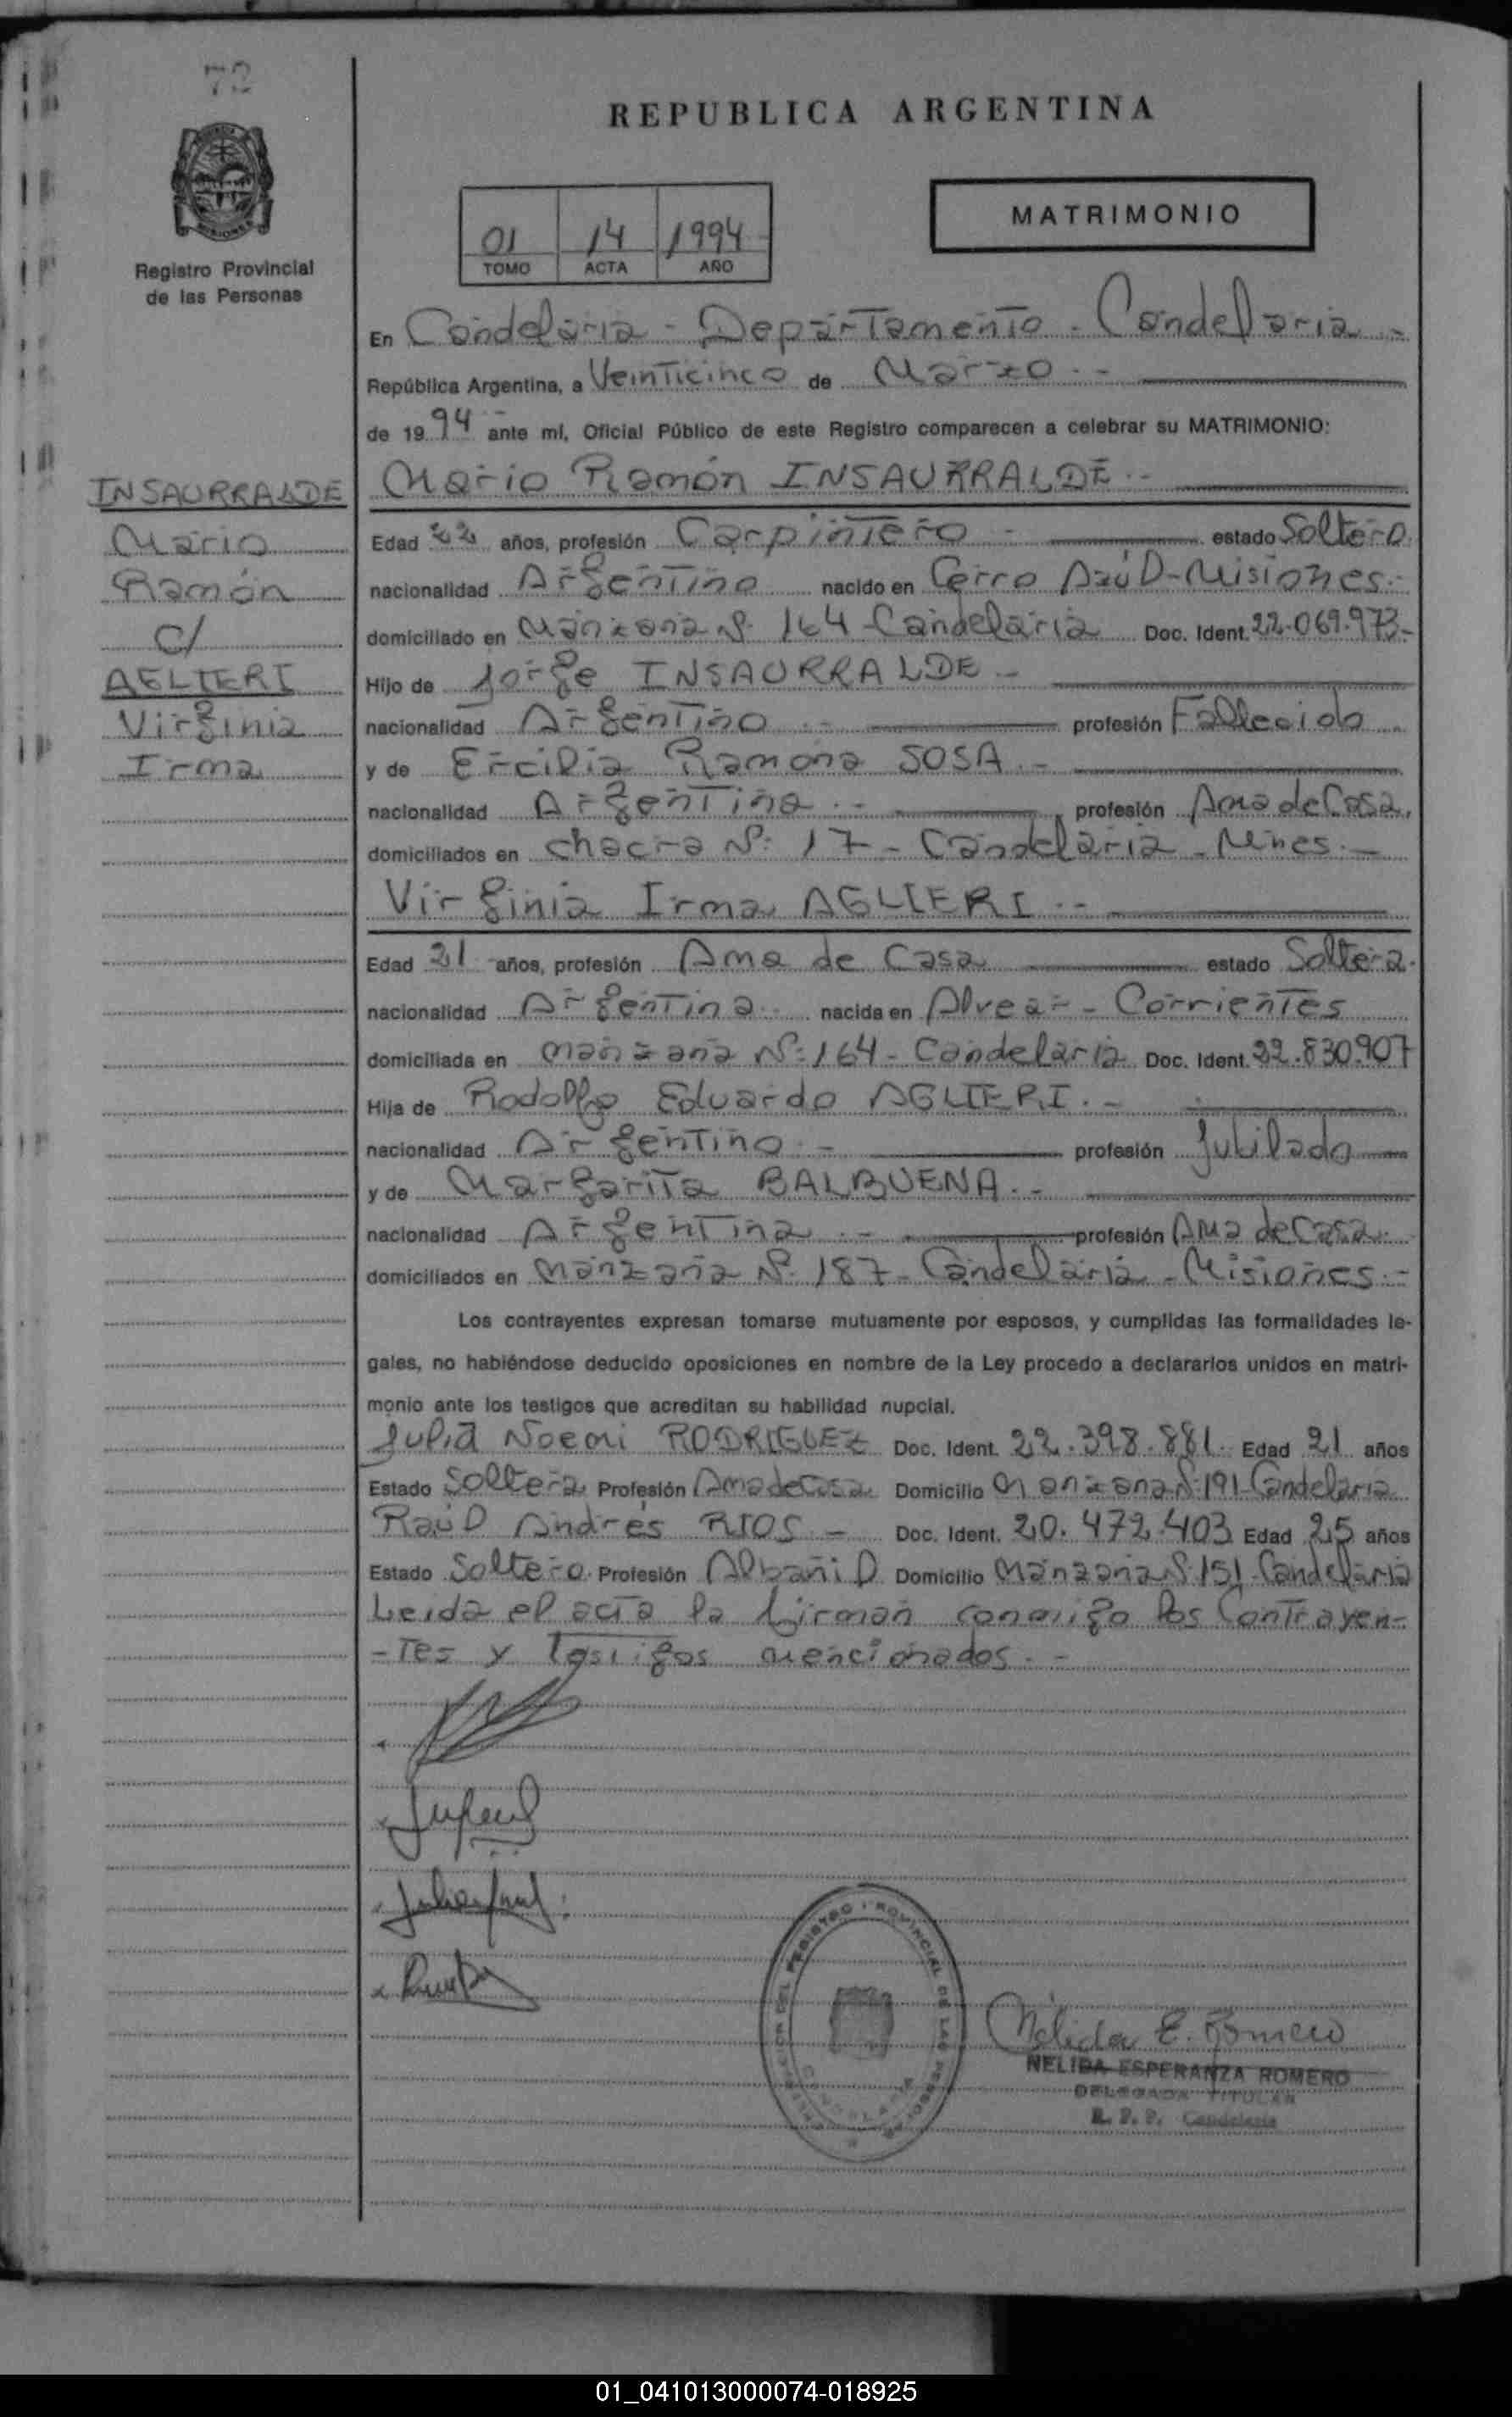 72
REPUBLICA ARGENTINA
Registro Provincial
de las Personas
01 14 1994
TOMO ACTA AÑO
MATRIMONIO
En Candelaria - Departamento - Candelaria -
República Argentina, a Veinticinco de Marzo . -
de 1994 ante mí, Oficial Público de este Registro comparecen a celebrar su MATRIMONIO:
INSAURRALDE
Mario
Ramón
c/
AGLIERI
Virginia
Irma
Mario Ramón INSAURRALDE . -
Edad 22 años, profesión Carpintero - estado Soltero.
nacionalidad Argentino nacido en Cerro Azúl-Misiones.-
domiciliado en Manzana Nº 164 - Candelaria Doc. Ident. 22.069.973-
Hijo de Jorge INSAURRALDE -
nacionalidad Argentino . - profesión Fallecido
y de Ercilia Ramona SOSA . -
nacionalidad Argentina . - profesión Ama de Casa.
domiciliados en chacra Nº: 17 - Candelaria - Mnes. -
Virginia Irma AGLIERI . -
Edad 21 años, profesión Ama de Casa estado Soltera.
nacionalidad Argentina nacida en Alvear - Corrientes
domiciliada en manzana Nº: 164 - Candelaria Doc. Ident. 22.830.907
Hija de Rodolfo Eduardo AGLIERI . -
nacionalidad Argentino . - profesión Jubilado
y de Margarita BALBUENA . -
nacionalidad Argentina . - profesión Ama de Casa.
domiciliados en Manzana Nº 187 - Candelaria - Misiones. -
Los contrayentes expresan tomarse mutuamente por esposos, y cumplidas las formalidades le-
gales, no habiéndose deducido oposiciones en nombre de la Ley procedo a declararlos unidos en matri-
monio ante los testigos que acreditan su habilidad nupcial.
Julia Noemi RODRIGUEZ Doc. Ident. 22.398.881. Edad 21 años
Estado Soltera Profesión Ama de Casa Domicilio Manzana Nº 191 - Candelaria
Raúl Andrés RIOS - Doc. Ident. 20.472.403 Edad 25 años
Estado Soltero. Profesión Albañil Domicilio Manzana Nº 151 - Candelaria
Leida el acta la firman conmigo los Contrayen-
-tes y testigos mencionados. -
REGISTRO PROVINCIAL DE LAS PERSONAS
Nélida E. Romero
NELIDA ESPERANZA ROMERO
DELEGADA TITULAR
R. P. P. Candelaria
01_041013000074-018925